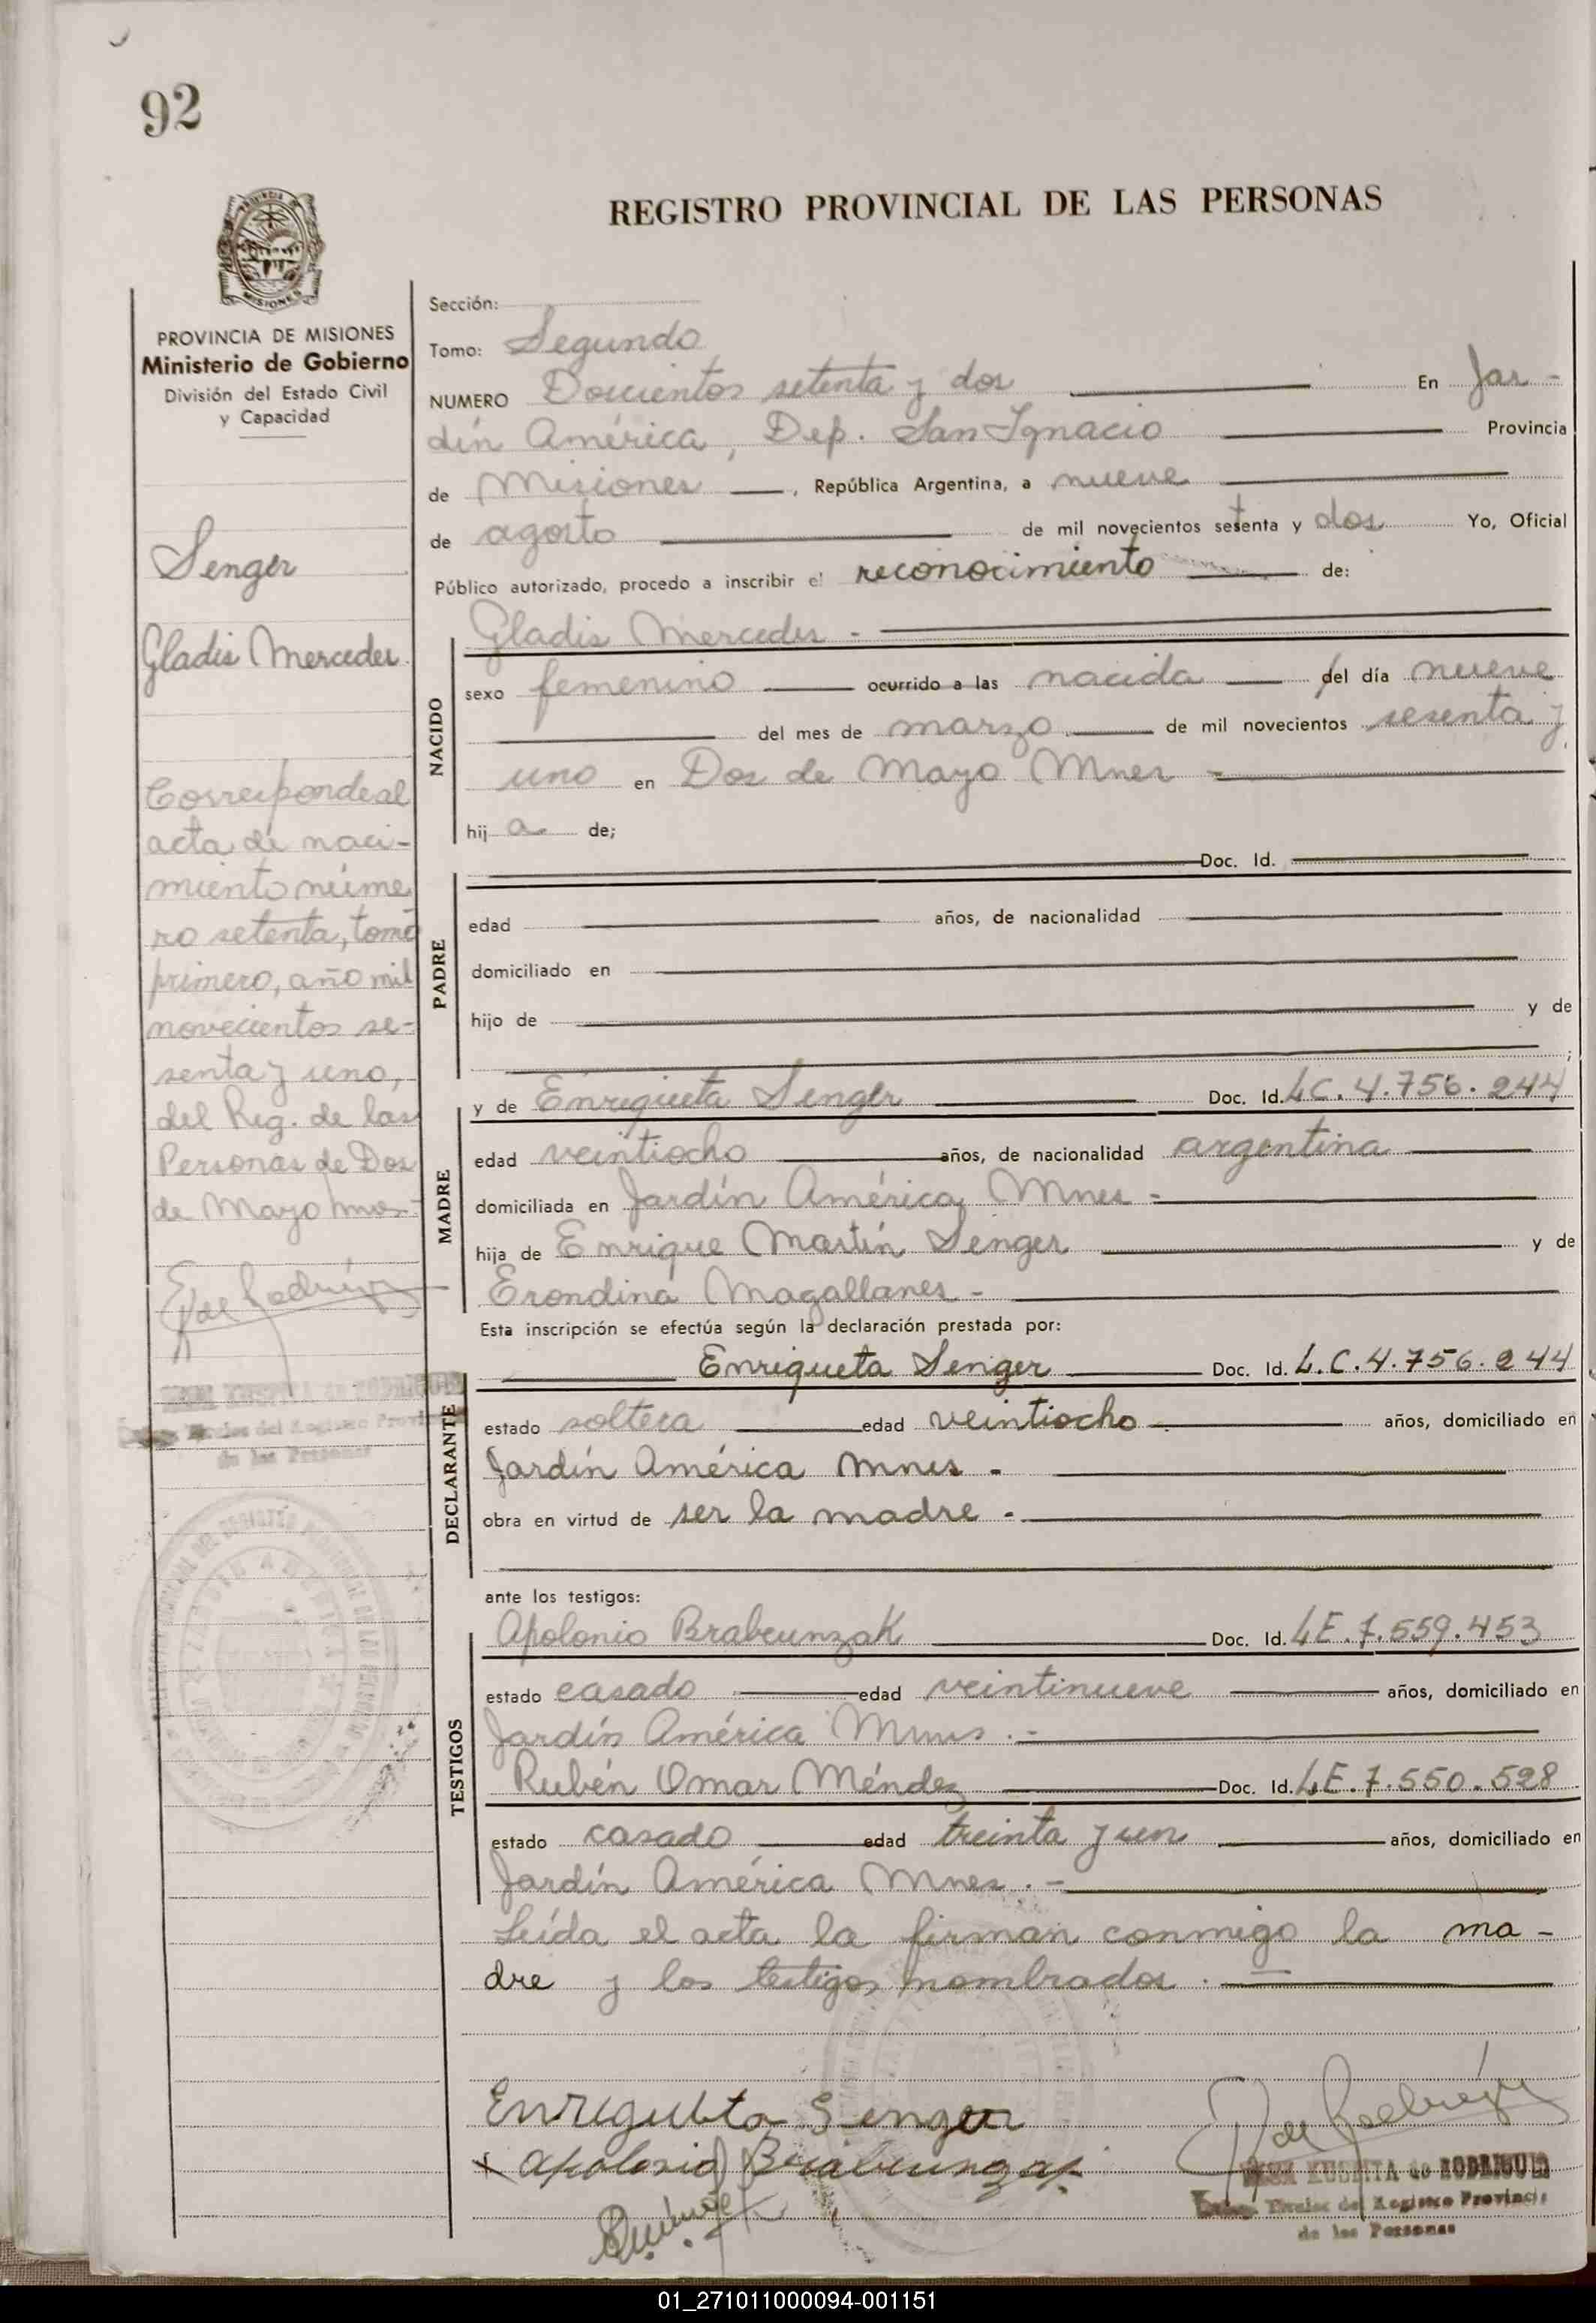 92
REGISTRO PROVINCIAL DE LAS PERSONAS
MISIONES
PROVINCIA DE MISIONES
Ministerio de Gobierno
División del Estado Civil
y Capacidad
Senger
Gladis Mercedes.
Corresponde al
acta de naci-
miento núme
ro setenta, tomo
primero, año mil
novecientos se-
senta y uno,
del Reg. de las
Personas de Dos
de Mayo Mnes-
Titular del Registro Provin
de las Personas
Sección:
Tomo: Segundo
NUMERO Doscientos setenta y dos En Jar-
dín América, Dep. San Ignacio Provincia
de Misiones, República Argentina, a nueve
de agosto de mil novecientos setenta y dos Yo, Oficial
Público autorizado, procedo a inscribir el reconocimiento de:
NACIDO
Gladis Mercedes -
sexo femenino ocurrido a las nacida del día nueve
del mes de marzo de mil novecientos sesenta y
uno en Dos de Mayo Mnes -
hij a de;
PADRE
Doc. Id.
edad años, de nacionalidad
domiciliado en
hijo de y de
;
MADRE
y de Enriqueta Senger Doc. Id. LC. 4.756.244
edad veintiocho años, de nacionalidad argentina
domiciliada en Jardín América Mnes -
hija de Enrique Martín Senger y de
Erondina Magallanes -
Esta inscripción se efectúa según la declaración prestada por:
DECLARANTE
Enriqueta Senger Doc. Id. L.C.4.756.244
estado soltera edad veintiocho años, domiciliado en
Jardín América Mnes -
obra en virtud de ser la madre -
ante los testigos:
TESTIGOS
Apolonio Brabcunzak Doc. Id. LE.7.559.453
estado casado edad veintinueve años, domiciliado en
Jardín América Mnes . -
Rubén Omar Méndez Doc. Id. L.E.7.550.528
estado casado edad treinta y un años, domiciliado en
Jardín América Mnes . -
Leída el acta la firman conmigo la ma-
dre y los testigos nombrados . -
Enriqueta Senger
x Apolonio
de RODRIGUEZ
Titular del Registro Provincial
de las Personas
01_271011000094-001151